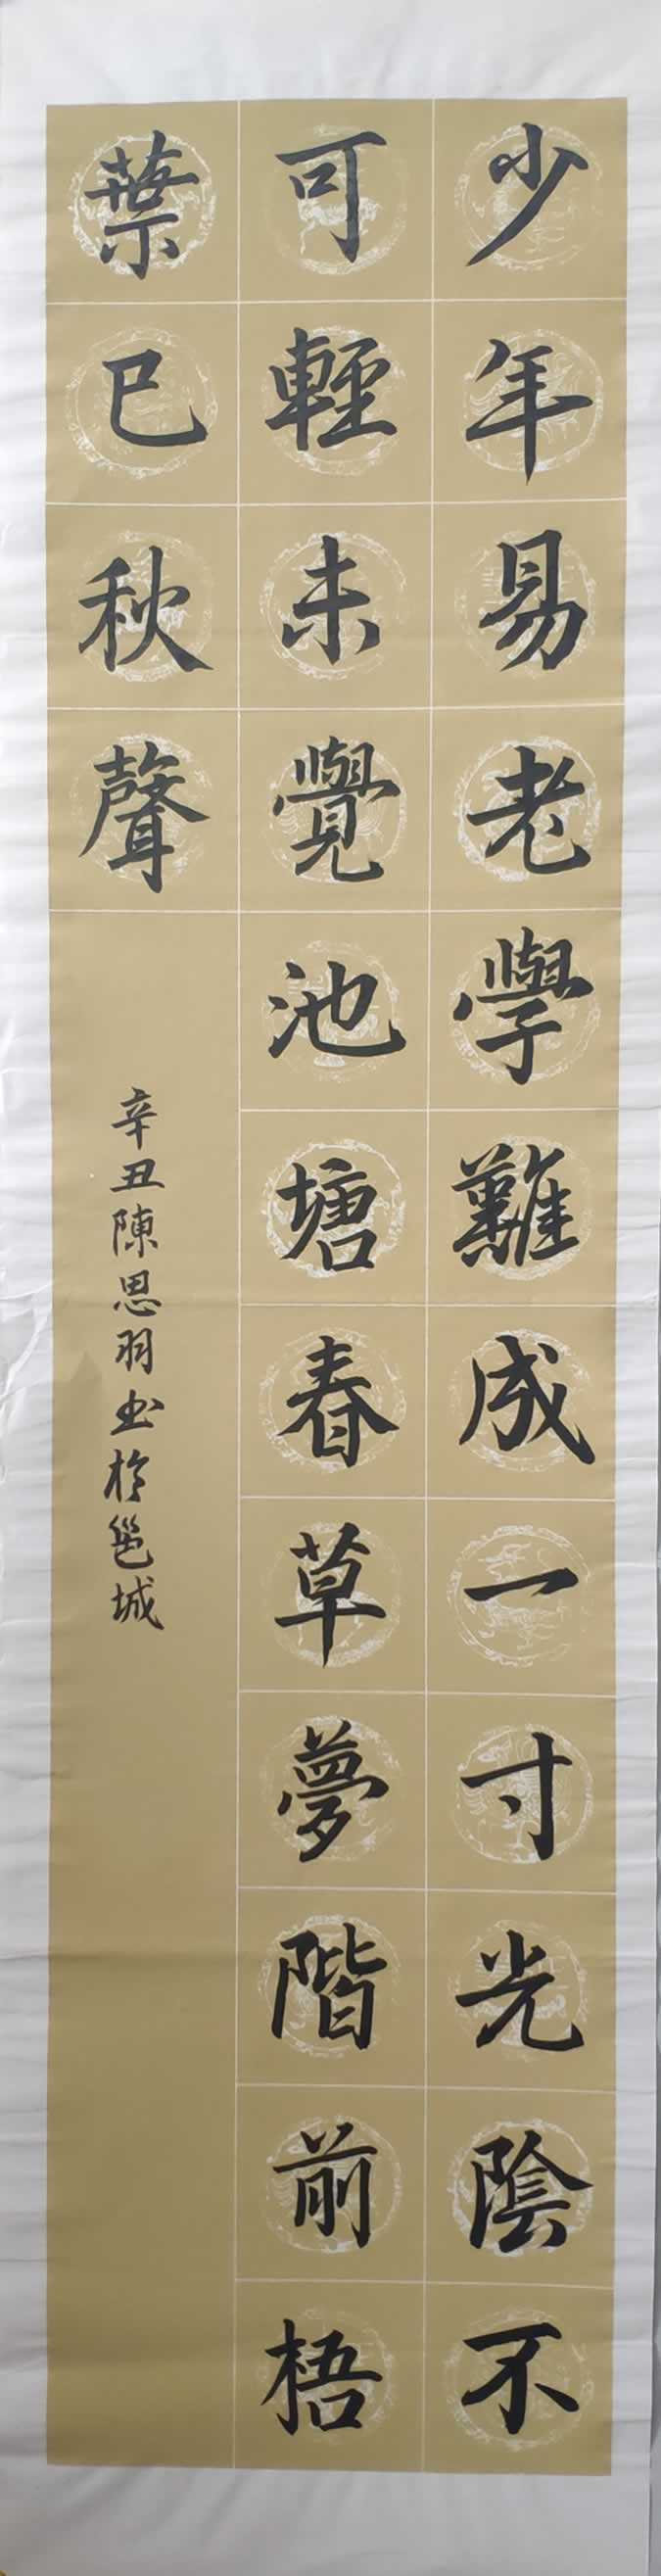 少年易老學難成一寸光陰不
可輕未覺池塘春草夢階前梧
葉已秋聲
辛丑陳思羽书於邕城